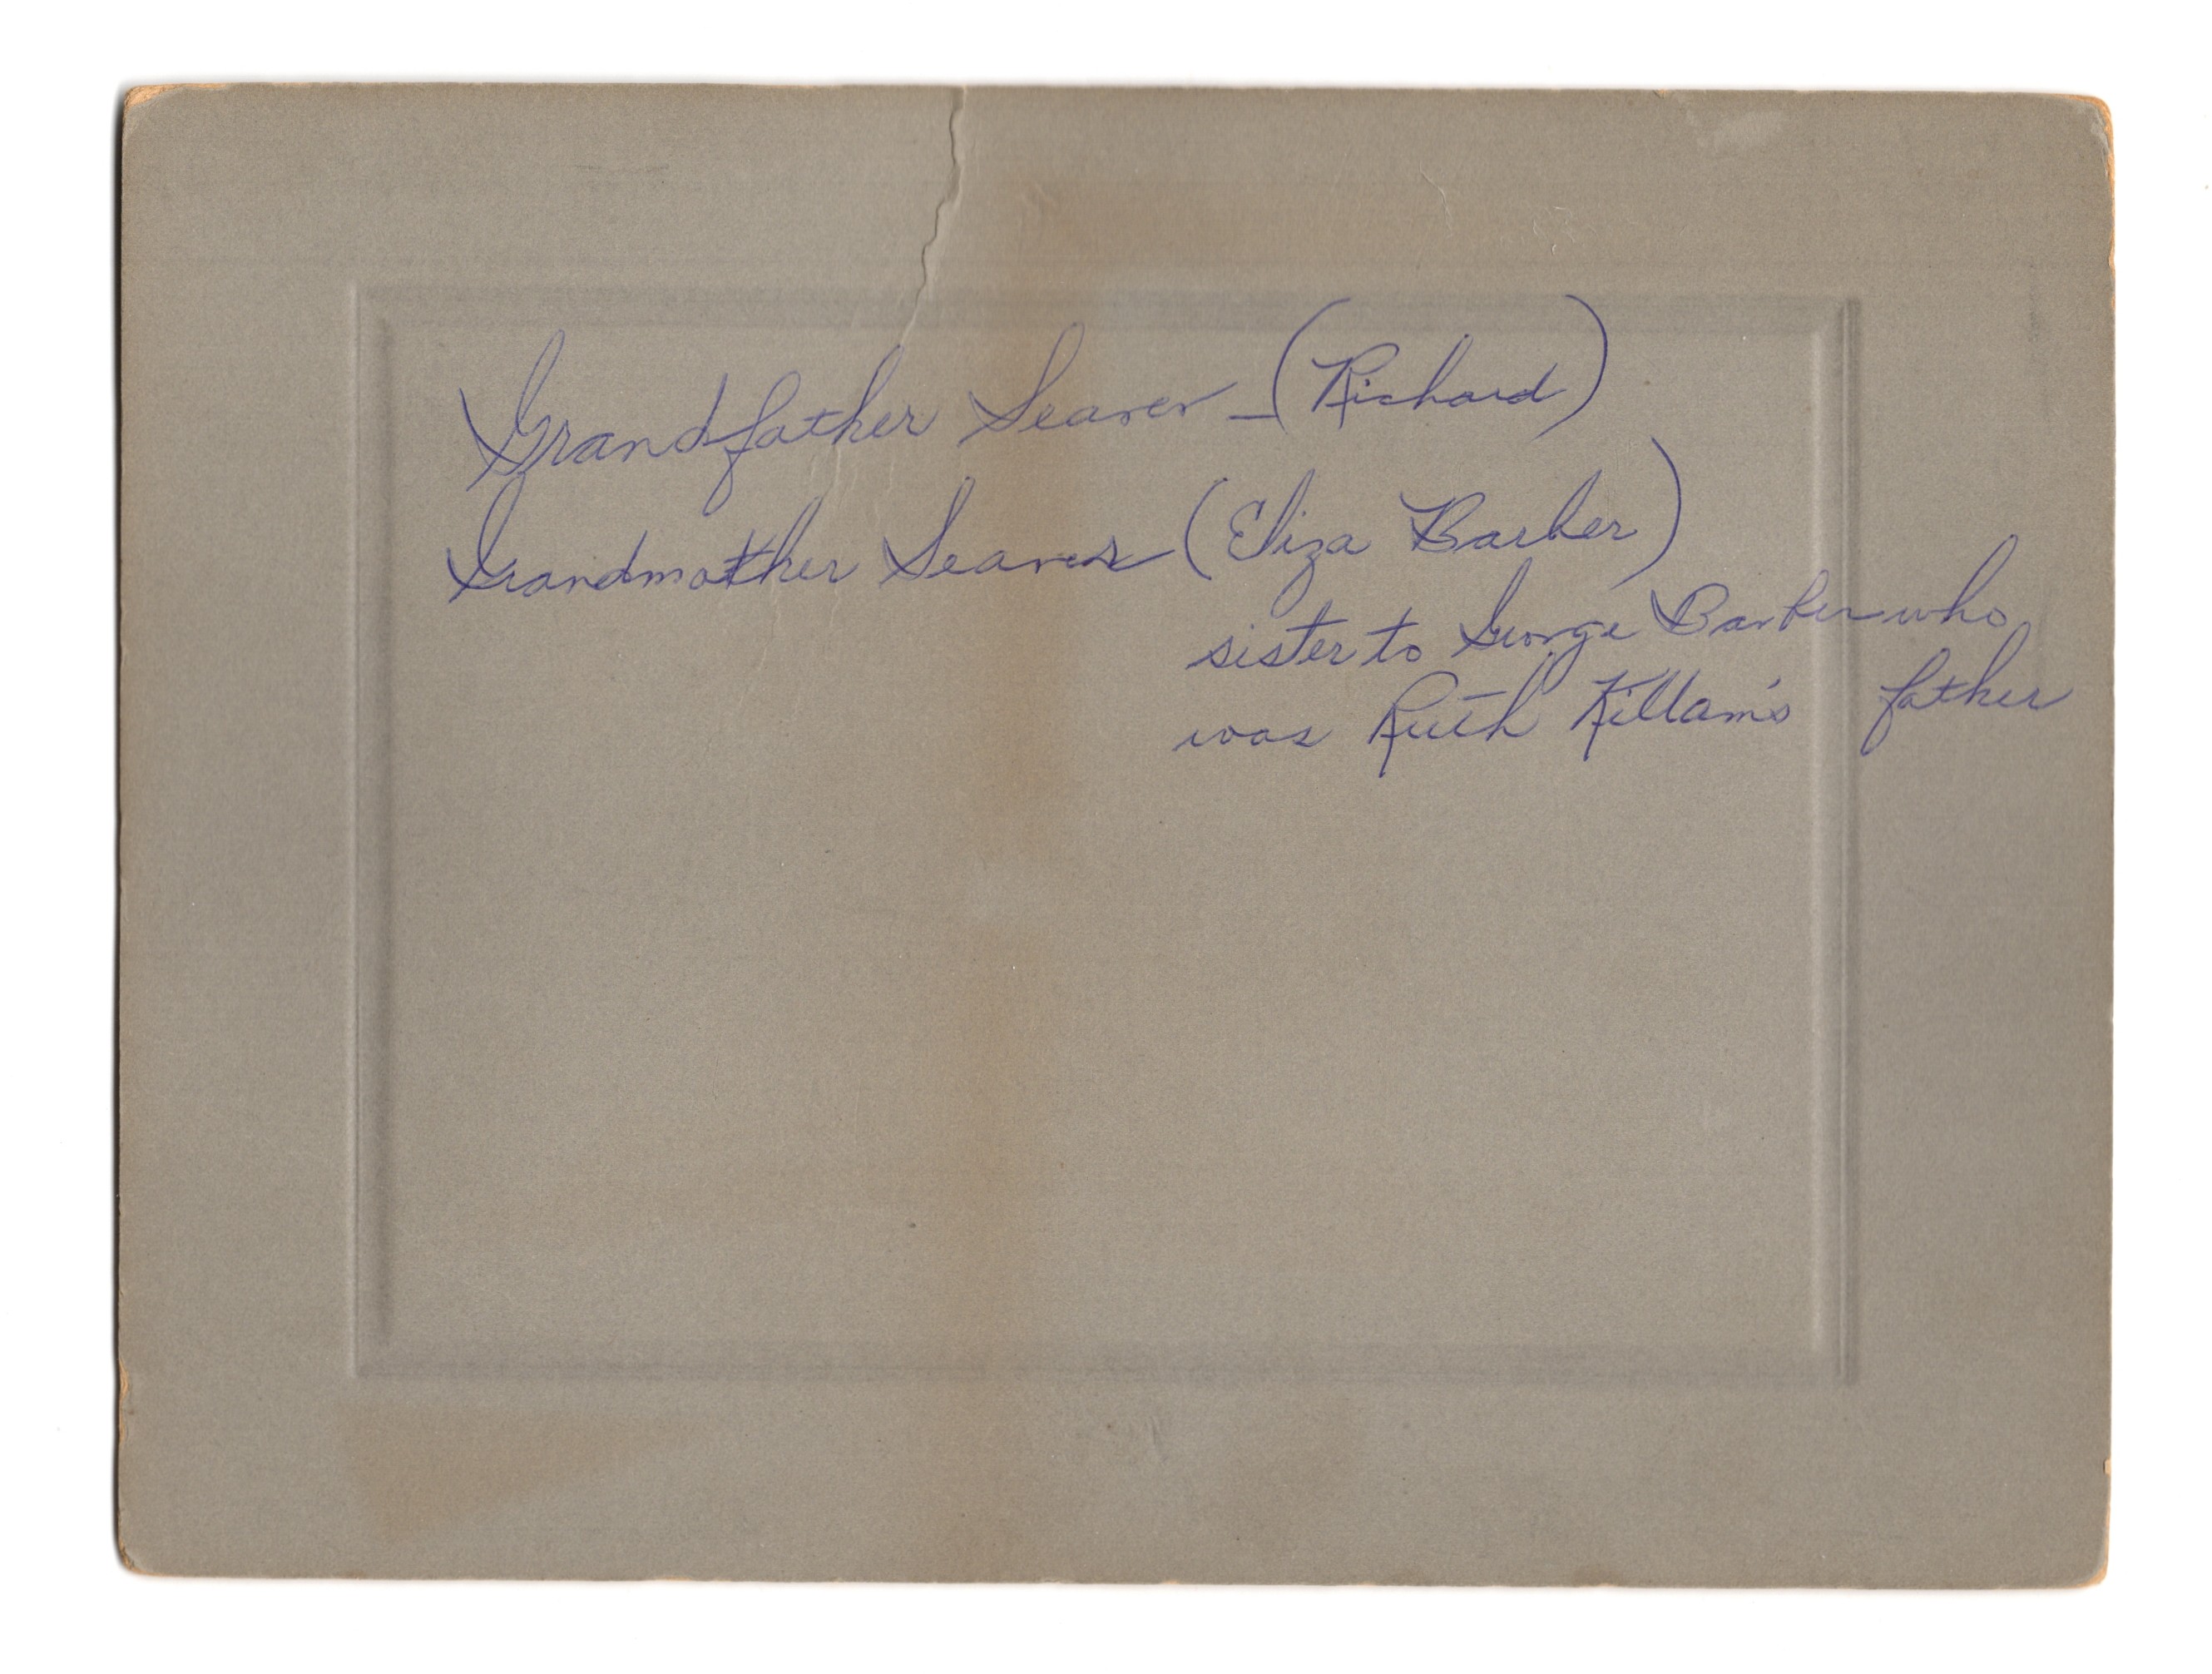 Grandfather Seaver - (Richard)
Grandmother Seaver (Eliza Barker)
sister to George Barker who
was Ruth Killam's father